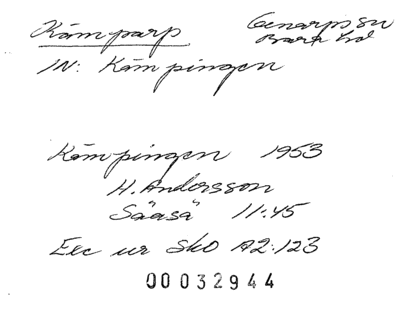 Kämparp Genarps sn
Bara hd
IN: Kämpingen
Kämpingen 1953
H. Andersson
Säaså 11:45
Exc ur SkO A2:123
00032944